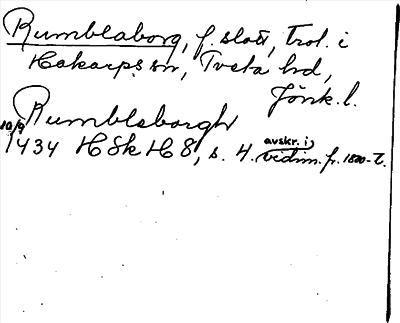 Rumblaborg, f. slott, trol. i
Hakarps sn, Tveta hd,
Jönk. l.
Rumblsborgh
10/9 1434 HSk H 8, s. 4. avskr. i vidim. fr. 1800-t.